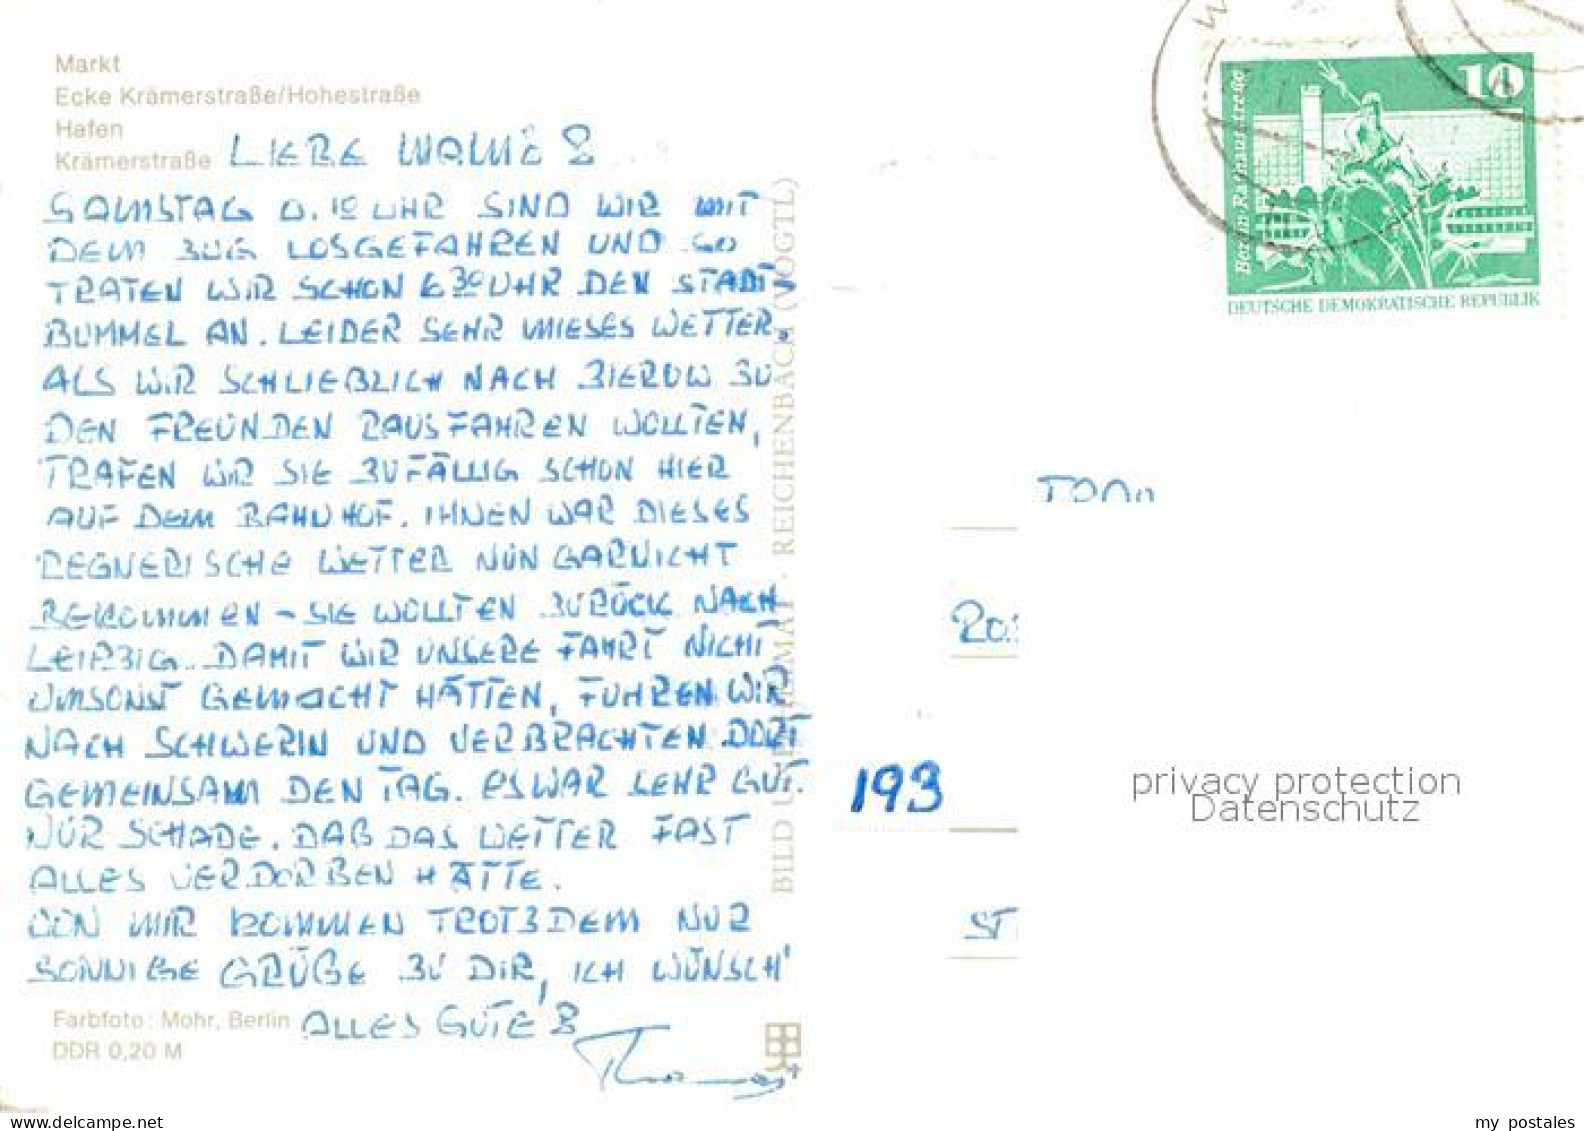 Markt
Ecke Krämerstraße/Hohestraße
Hafen
Krämerstraße
LIEBE
SAMSTAG 0.10 UHR SIND WIR MIT
DEM ZUG LOSGEFAHREN UND SO
TRATEN WIR SCHON 6 30 UHR DEN STADT-
BUMMEL AN. LEIDER SEHR MIESES WETTER.
ALS WIR SCHLIEßLICH NACH BIEROW ZU
DEN FREUNDEN RAUSFAHREN WOLLTEN,
TRAFEN WIR SIE ZUFÄLLIG SCHON HIER
AUF DEM BAHNHOF. IHNEN WAR DIESES
REGNERISCHE WETTER NUN GARNICHT
BEKOMMEN - SIE WOLLTEN ZURÜCK NACH
LEIPZIG. DAMIT WIR UNSERE FAHRT NICHT
UMSONST GEMACHT HÄTTEN, FUHREN WIR
NACH SCHWERIN UND VERBRACHTEN DORT
GEMEINSAM DEN TAG. ES WAR SEHR GUT.
NUR SCHADE, DAß DAS WETTER FAST
ALLES VERDORBEN HÄTTE.
VON MIR KOMMEN TROTZDEM NUR
SONNIGE GRÜßE ZU DIR, ICH WÜNSCH'
ALLES GUTE!
Thomas
Farbfoto: Mohr, Berlin
DDR 0,20 M
BILD UND HEIMAT · REICHENBACH (VOGTL)
10
Berlin-Rathausstraße
DEUTSCHE DEMOKRATISCHE REPUBLIK
193
privacy protection
Datenschutz
my postales